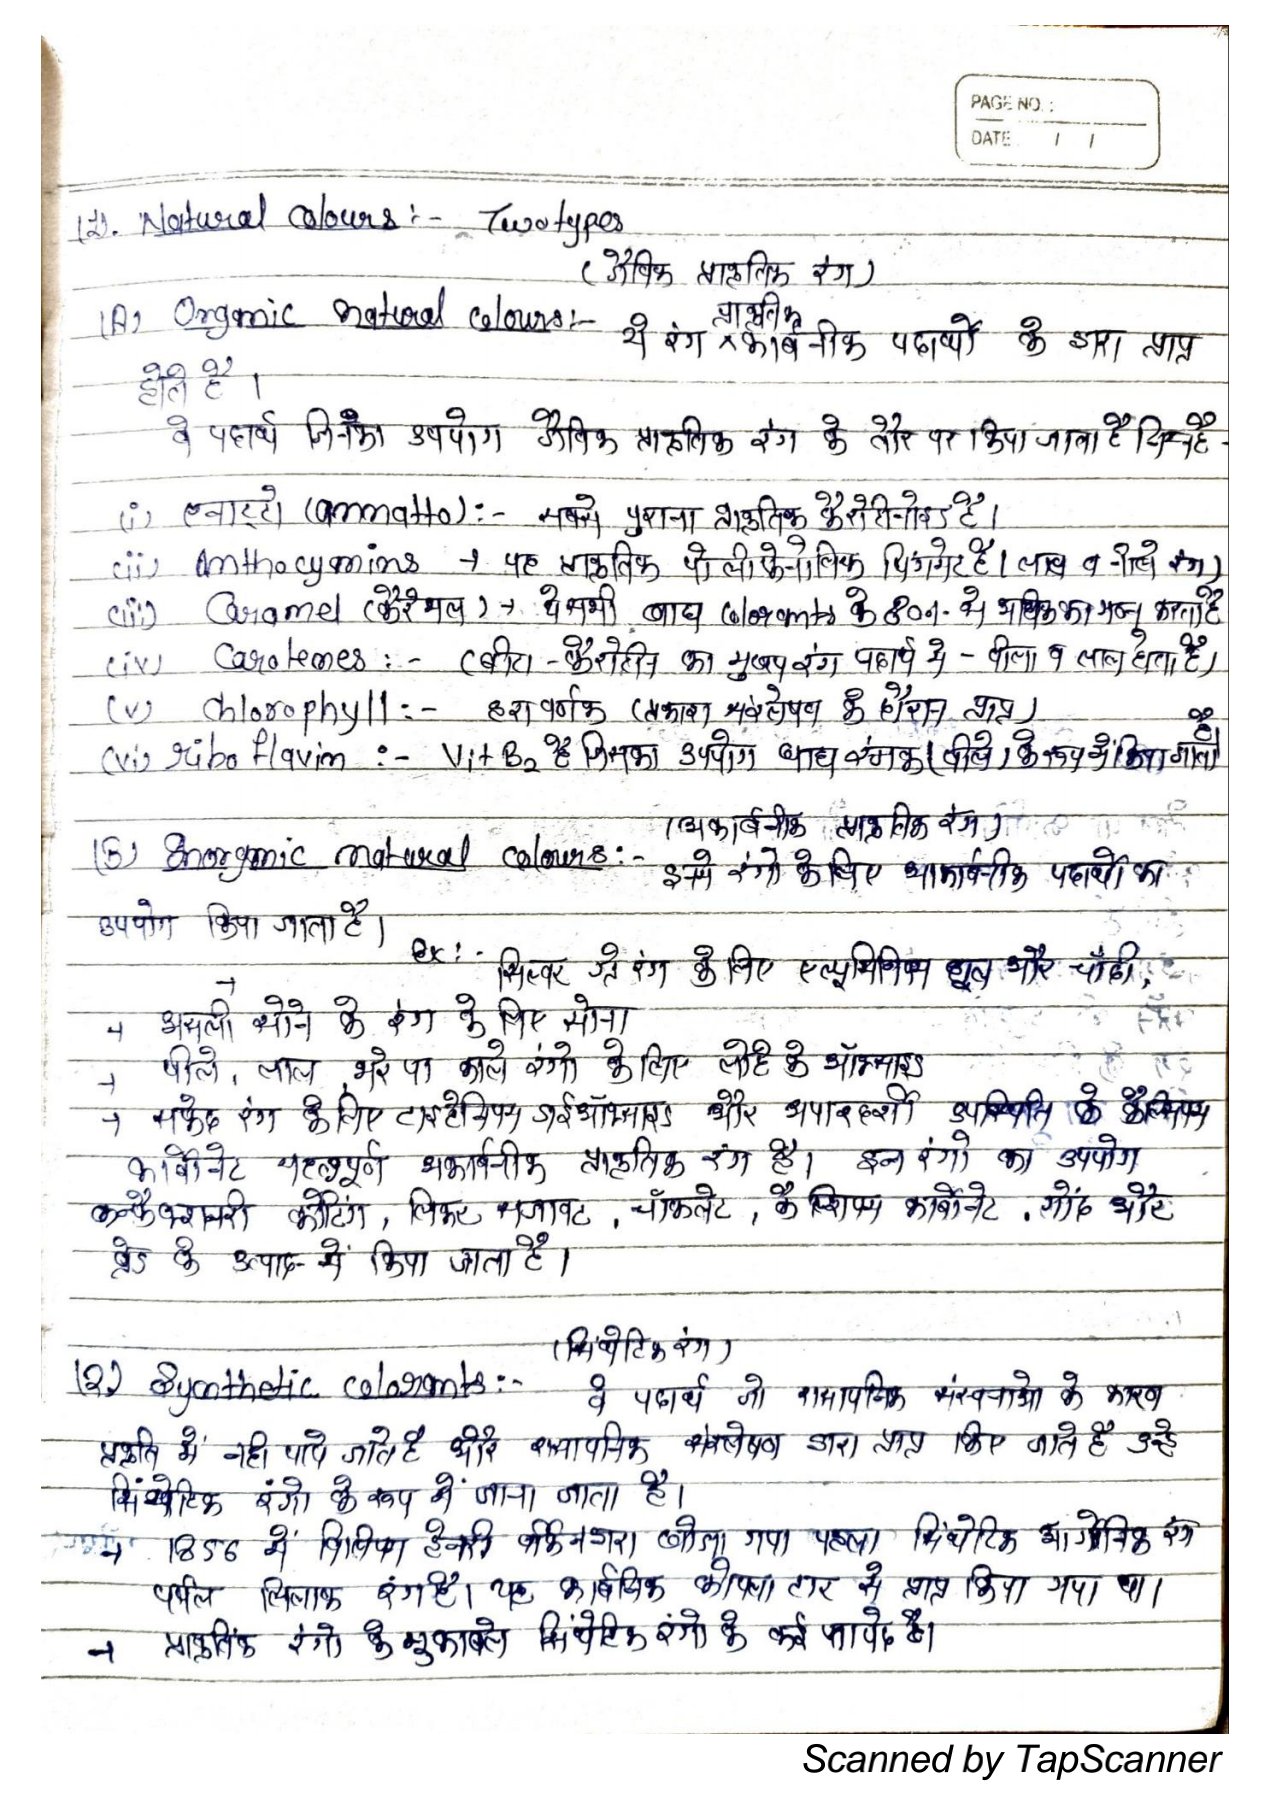 PAGE NO. :
DATE / /
(1). Natural Colours :- Two types
(जैविक प्राकृतिक रंग)
(A) Organic natural colours :-
प्राकृतिक
ये रंग ^ कार्बनीक पदार्थों के द्वारा प्राप्त
होते है ।
वे पदार्थ जिनका उपयोग जैविक प्राकृतिक रंग के तौर पर किया जाता है निम्न है -
(i) एनाट्टो (annatto) :- सबसे पुराना प्राकृतिक कैरोटीनोइड है।
(ii) Anthocyanins → यह प्राकृतिक पोलीफेनोलिक पिगमेंट है। लाल व नीले रंग)
(iii) Caramel (कैरेमल) → ये सभी खाद्य colorants के 80% से अधिक का गठन करता है
(iv) Carotenes :- (बीटा-कैरोटीन का मुख्य रंग पदार्थ में - पीला व लाल होता है)
(v) Chlorophyll :- हरा वर्णक (प्रकाश संश्लेषण के दौरान प्राप्त)
(vi) riboflavin :- Vit B2 है जिसका उपयोग खाद्य रंजक (पीले) के रूप में किया जाता है
(अकार्बनीक प्राकृतिक रंग)
(B) Inorganic natural colours :-
इनमे रंगो के लिए अकार्बनीक पदार्थों का
उपयोग किया जाता है।
ex :-
→ सिल्वर ग्रे रंग के लिए एल्यूमिनियम धूल और चाँदी,
→ असली सोने के रंग के लिए सोना
→ पीले, लाल, भूरे या काले रंगो के लिए लोहे के ऑक्साइड
→ सफेद रंग के लिए टाइटेनियम डाईऑक्साइड और अपारदर्शी उपस्थिति के कैल्सियम
कार्बोनेट महत्वपूर्ण अकार्बनीक प्राकृतिक रंग है। इन रंगो का उपयोग
कन्फैक्शनरी कोटिंग, लिकर सजावट, चॉकलेट, कैल्शियम कार्बोनेट, गोंद और
ब्रेड के उत्पाद में किया जाता है।
(सिंथेटिक रंग)
(2) Synthetic colorants :- वे पदार्थ जो रासायनिक संरचनाओ के कारण
प्रकृति में नही पाये जाते है और रासायनिक संश्लेषण द्वारा प्राप्त किए जाते है उन्हे
सिंथेटिक रंगो के रूप में जाना जाता है।
→ 1856 में विलियम हेनरी पर्किन द्वारा खोजा गया पहला सिंथेटिक आर्गेनिक रंग
पर्पल लिलाक रंग है। यह कार्बनिक कोयला टार से प्राप्त किया गया था।
→ प्राकृतिक रंगो के मुकाबले सिंथेटिक रंगो के कई फायदे है।
Scanned by TapScanner